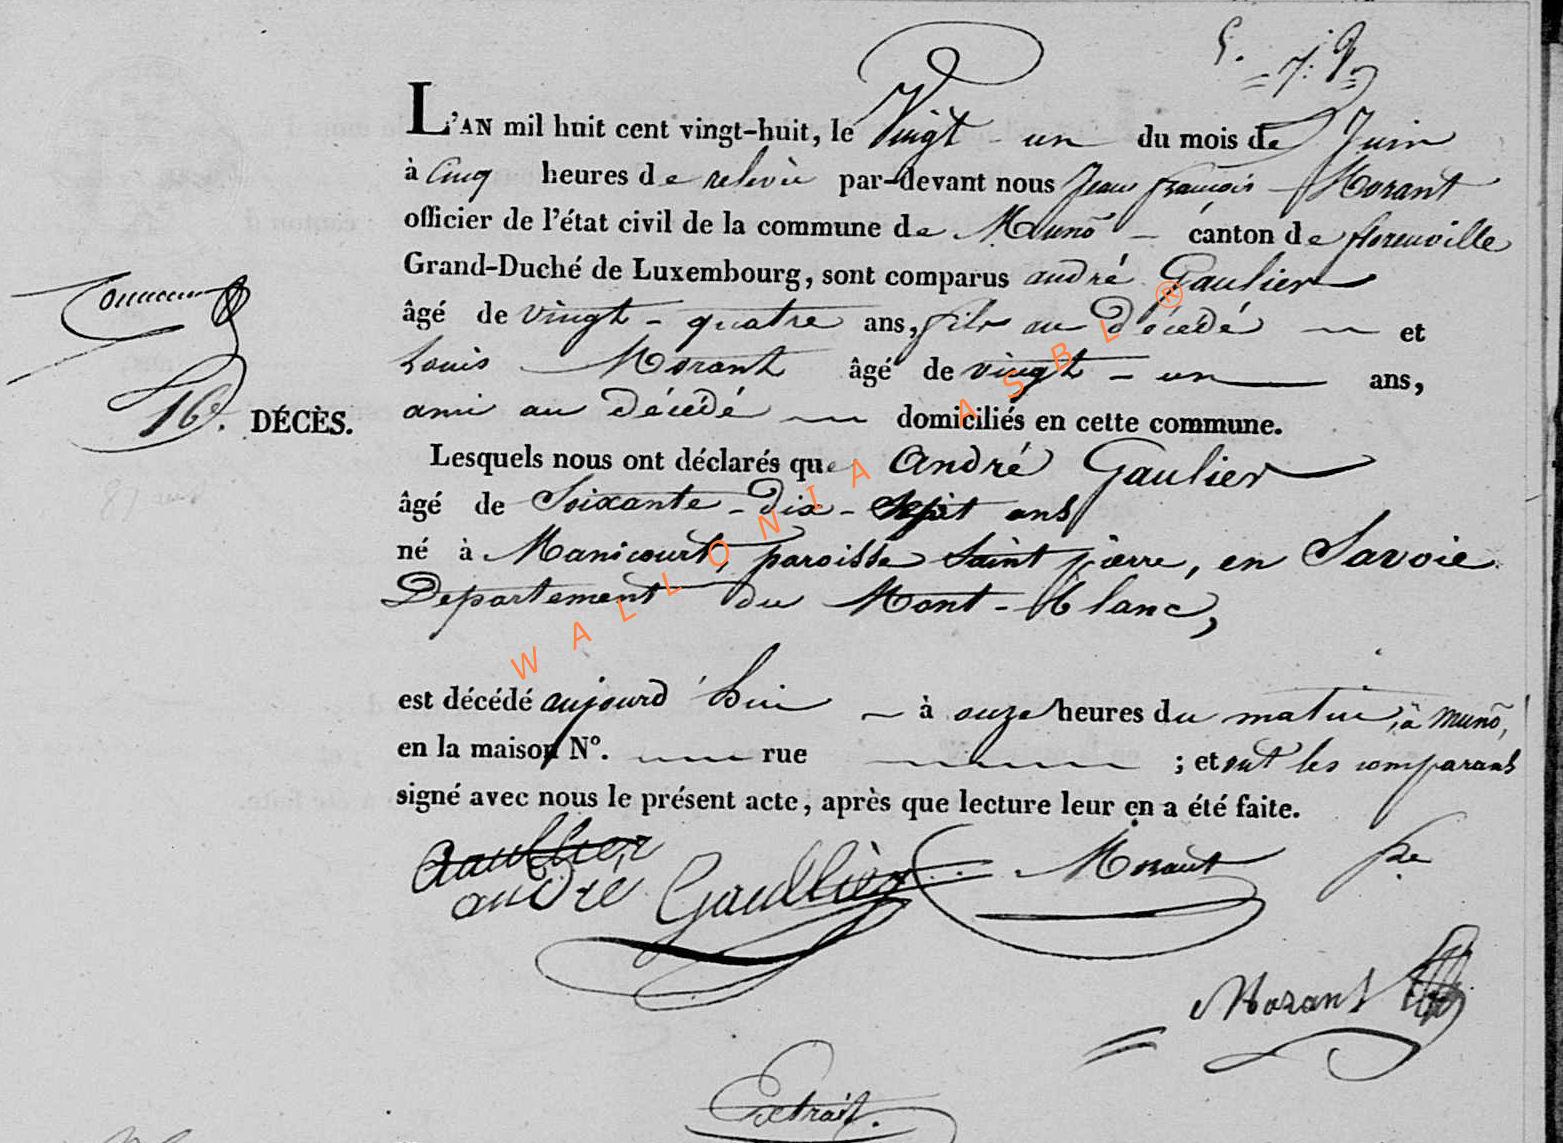 L'AN mil huit cent vingt-huit, le Vingt - un du mois de Juin
à Cinq heures de relevée par-devant nous Jean françois Morant
officier de l'état civil de la commune de Munõ - canton de florenville
Grand-Duché de Luxembourg, sont comparus andré Gaulier
âgé de vingt - quatre ans, fils au décédé et
Louis Morant âgé de vingt - un ans,
16e. DÉCÈS. ami au décédé domiciliés en cette commune.
Lesquels nous ont déclarés que André Gaulier
âgé de Soixante - dix - sept ans
né à Manicourt, paroisse Saint pierre, en Savoie
Departement du Mont - blanc,
est décédé aujourd'hui - à onze heures du matin, à munõ,
en la maison N°. rue ; et ont les comparans
signé avec nous le présent acte, après que lecture leur en a été faite.
Gaullier
andré Gaullier Morant
Morant
Extrait.
WALLONIA ASBL ®